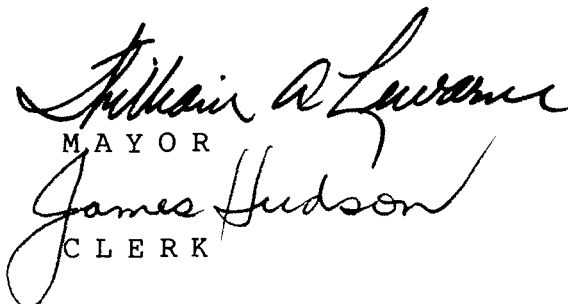 William A Lawrence
MAYOR
James Hudson
CLERK